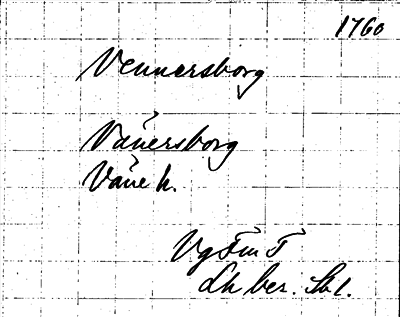 1760
Vennersborg
Vänersborg
Väne h.
Vg Fm T
Lh ber. Sbl.